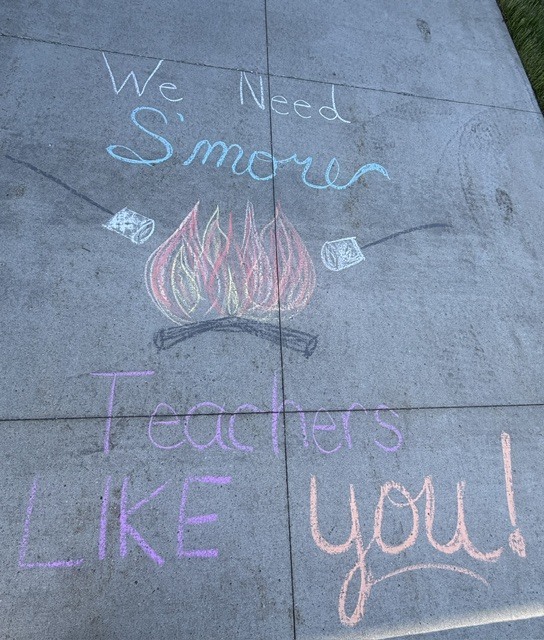 We Need
S'more
Teachers
LIKE you!